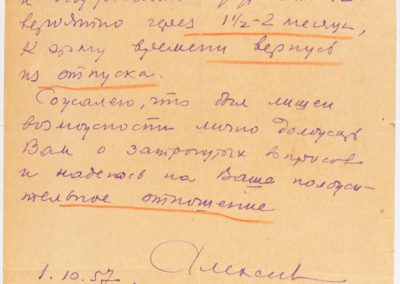 вероятно через 1½-2 месяца,
к этому времени вернусь
из отпуска.
Сожалею, что был лишен
возможности лично доложить
Вам о затронутых вопросов
и надеюсь на Ваше положи-
тельное отношение
1.10.57.